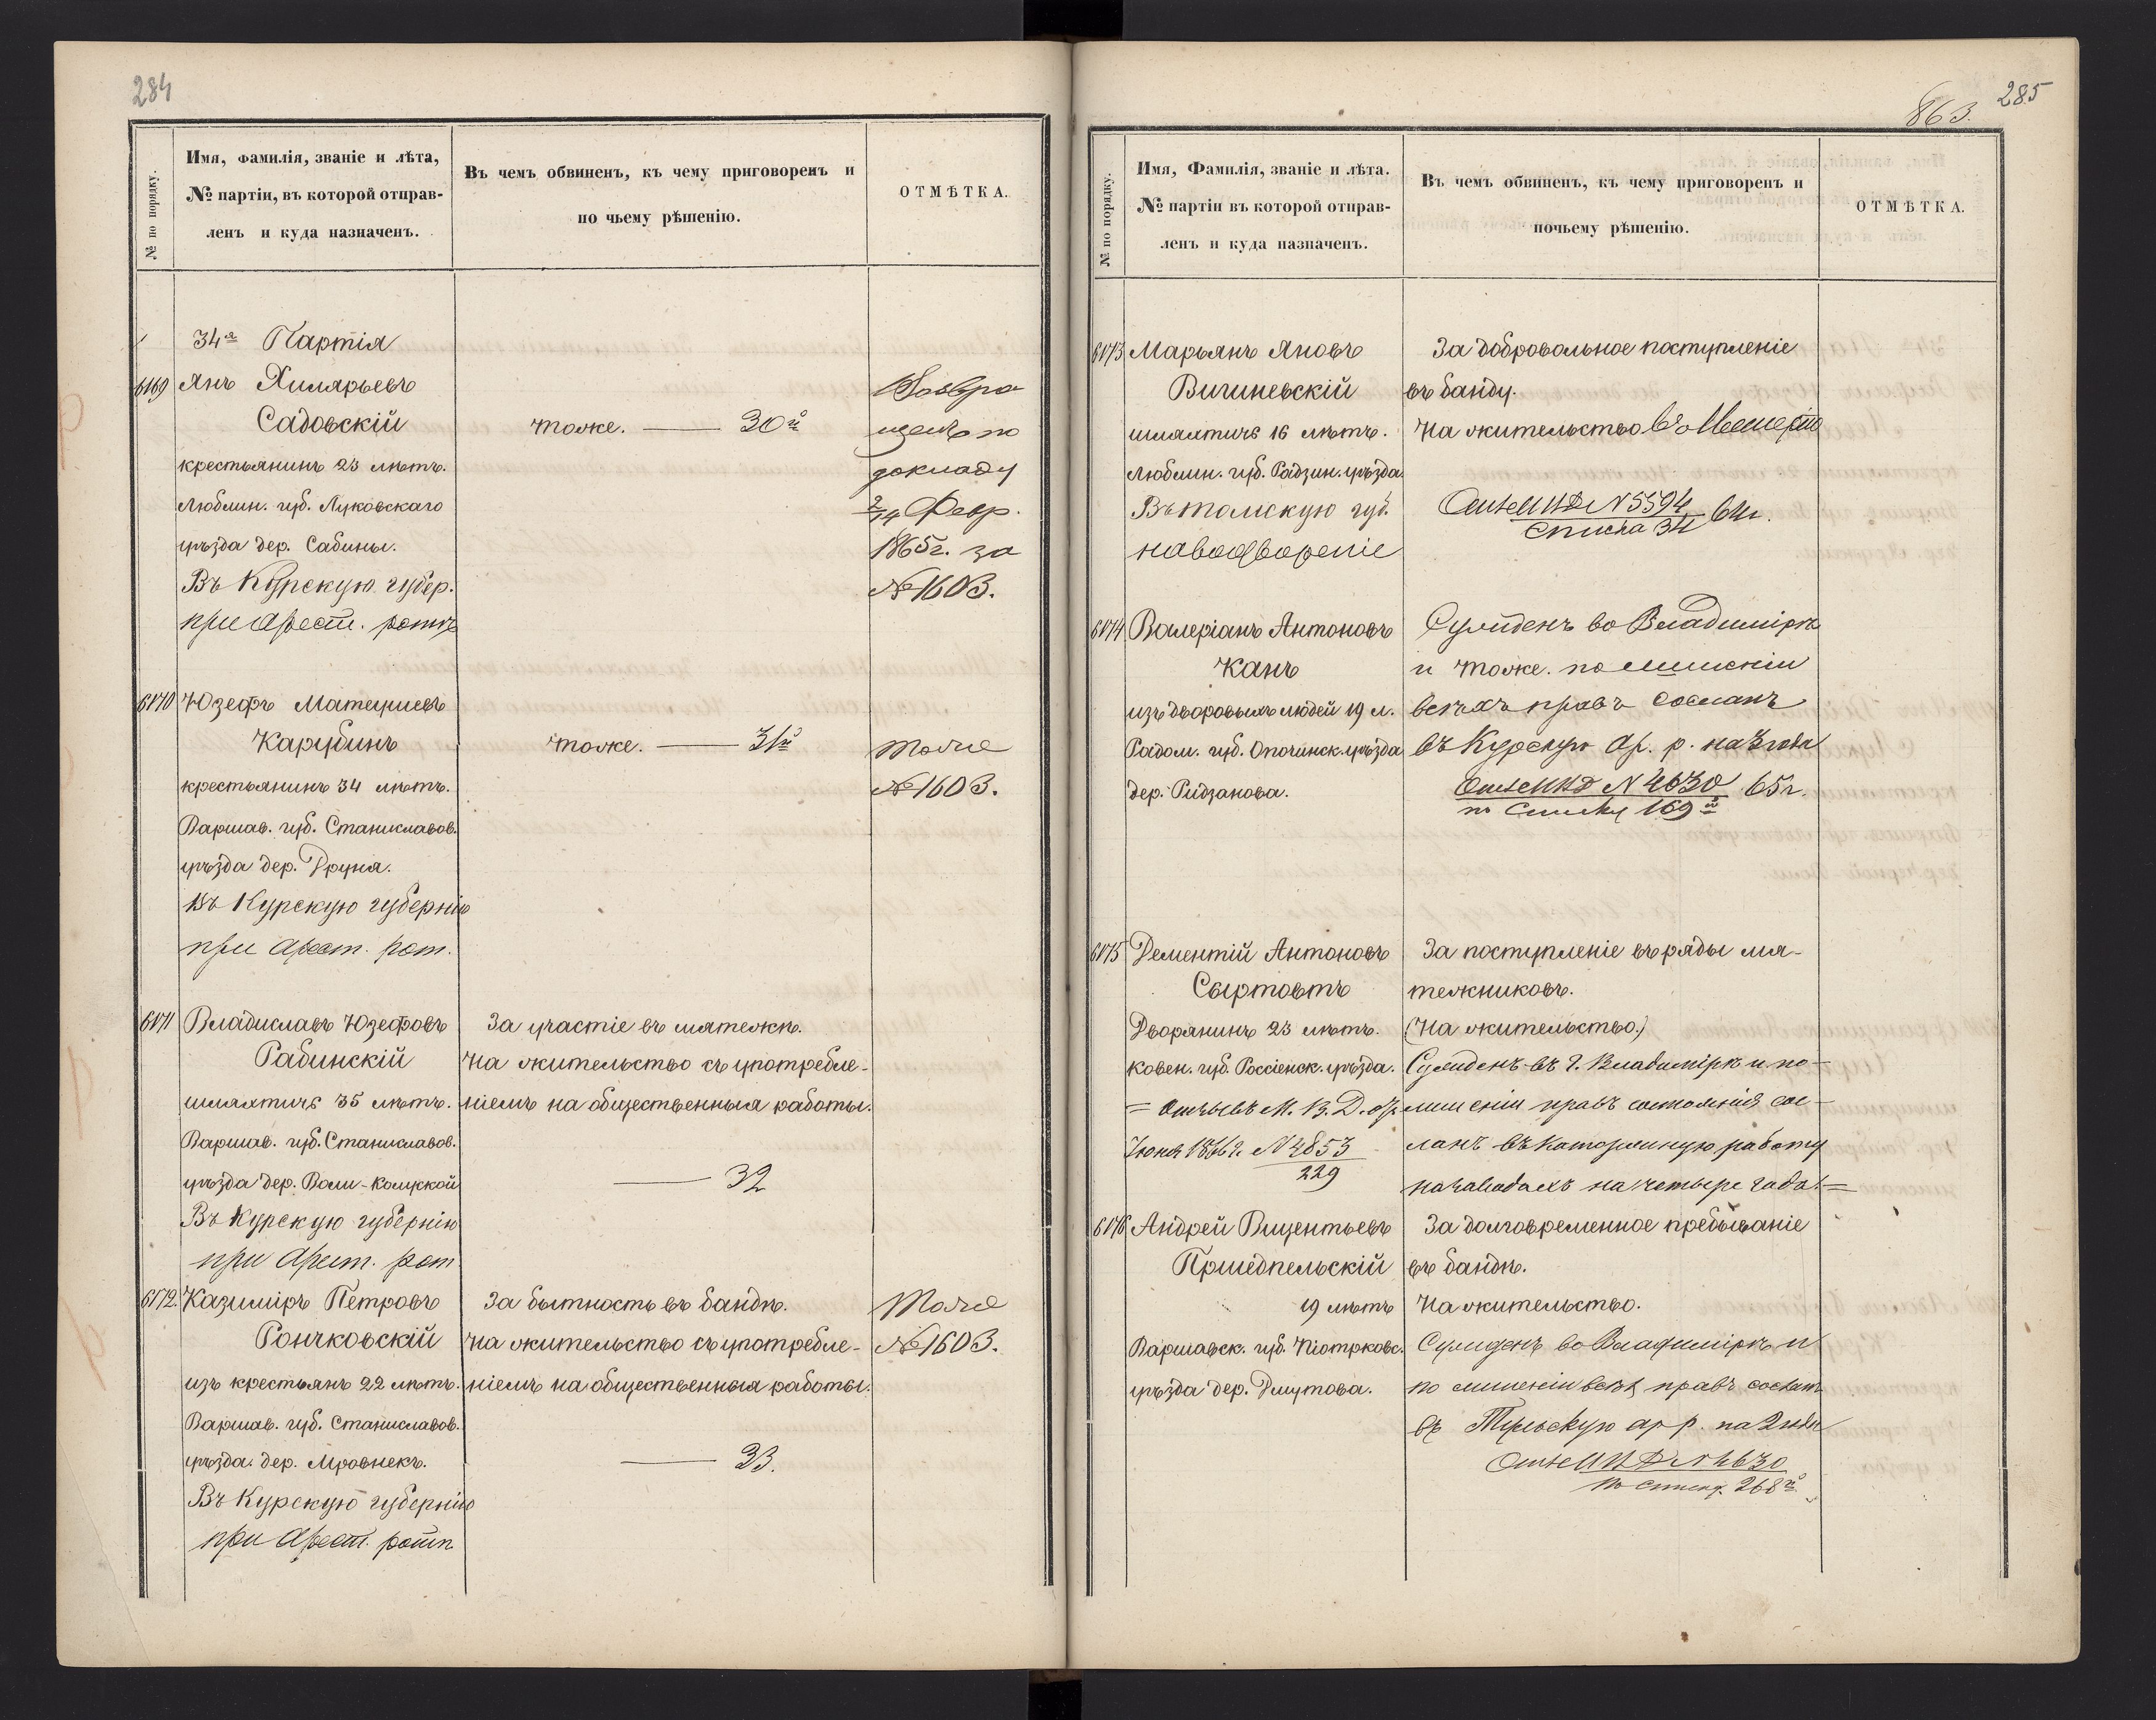 284
№ по порядку.
Имя, фамилія, званіе и лѣта,
№ партіи, въ которой отправ-
ленъ и куда назначенъ.
Въ чемъ обвиненъ, къ чему приговоренъ и
по чьему рѣшенію.
ОТМѢТКА.
34я Партія
6169 Янъ Хилярьевъ
Садовскій
крестьянинъ 23 лѣтъ.
Люблин. губ. Луковскаго
уѣзда дер. Сабины.
Въ Курскую губер.
при Арест. ротѣ
тоже. — 30й
Возвра
щенъ по
докладу
2/14 Февр.
1865г. за
№ 1603.
6170 Юзефъ Матеушевъ
Карубинъ
крестьянинъ 34 лѣтъ.
Варшав. губ. Станиславов.
уѣзда дер. Друня.
Въ Курскую губернію
при Арест. рот.
тоже. — 31й
тоже
№ 1603.
6171 Владиславъ Юзефовъ
Рабинскій
шляхтичъ 35 лѣтъ.
Варшав. губ. Станиславов.
уѣзда дер. Воли-Колуской
Въ Курскую губернію
при Арест. рот
За участіе въ мятежѣ.
На жительство съ употребле-
ніемъ на общественныя работы.
— 32
6172. Казиміръ Петровъ
Рончковскій
изъ крестьянъ 22 лѣтъ.
Варшав. губ. Станиславов.
уѣзда. дер. Мровнекъ.
Въ Курскую губернію
при Арест. ротѣ
За бытность въ бандѣ.
На жительство съ употребле-
ніемъ на общественныя работы.
— 33.
тоже
№ 1603.
285
863.
№ по порядку.
Имя, Фамилія, званіе и лѣта.
№ партіи въ которой отправ-
ленъ и куда назначенъ.
Въ чемъ обвиненъ, къ чему приговоренъ и
почьему рѣшенію.
ОТМѢТКА.
6173 Марьянъ Яновъ
Вичиневскій
шляхтичъ 16 лѣтъ.
Люблин. губ. Радзин. уѣзда.
Въ Томскую губ.
на водвореніе
За добровольное поступленіе
въ банду.
На жительство въ
№ 5594
списка 34 64г.
6174 Валеріанъ Антоновъ
Канъ
изъ дворовыхъ людей 19 л.
Радом. губ. Опочинск. уѣзда
дер. Ридзанова.
Сужденъ во Владимірѣ
и тоже. по лишеніи
всѣхъ правъ сосланъ
въ Курскую Ар. р. на 3 года
№ 4630 65г.
по списку 169й
6175 Дементій Антоновъ
Сыртовтъ
Дворянинъ 23 лѣтъ.
Ковен. губ. Россіенск. уѣзда.
= Отзывъ М. В. Д. от
Іюня 1866г. № 4853
229
За поступленіе въ ряды мя-
тежниковъ.
(На жительство.)
Сужденъ въ г. Владимірѣ и по-
лишеніи правъ состоянія сос-
ланъ въ каторжную работу
на заводахъ на четыре года. =
6176 Андрей Вицентьевъ
Пршедпельскій
19 лѣтъ
Варшавск. губ. Піотрковс.
уѣзда дер. Дмутова.
За долговременное пребываніе
въ бандѣ.
На жительство.
Сужденъ во Владимірѣ и
по лишеніи всѣхъ правъ сосланъ
въ Тульскую ар р. на 2 года
№ 4630
по списк. 268й